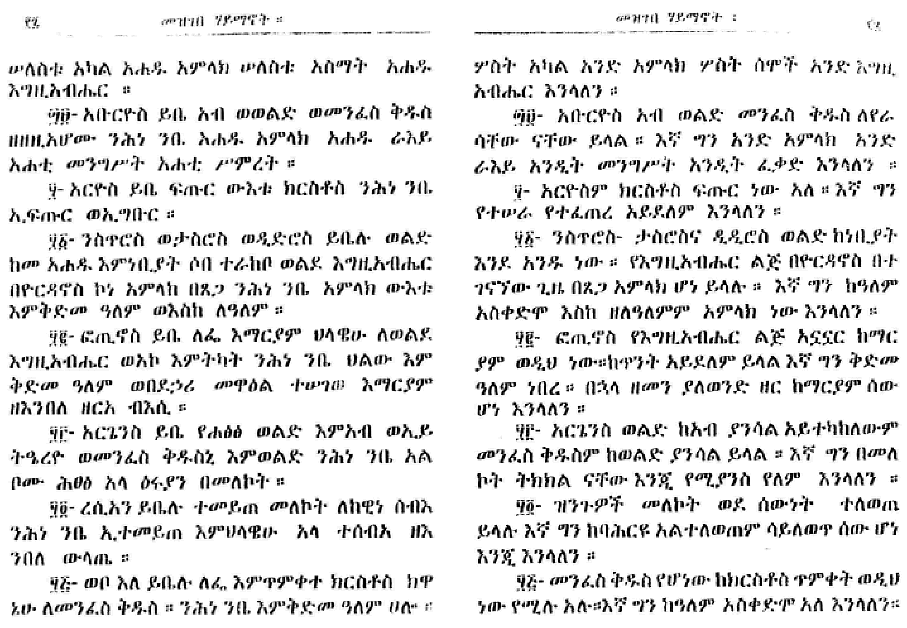 መዝገበ ሃይማኖት ።
ሠለስቱ አካል አሐዱ አምላክ ሠለስቱ አስማት አሐዱ
እግዚአብሔር ።
፵፱- አቡርዮስ ይቤ አብ ወወልድ ወመንፈስ ቅዱስ
ዘዘዚአሆሙ ንሕነ ንቤ አሐዱ አምላክ አሐዱ ራእይ
አሐቲ መንግሥት አሐቲ ሥምረት ።
፶- አርዮስ ይቤ ፍጡር ውእቱ ክርስቶስ ንሕነ ንቤ
ኢፍጡር ወኢግቡር ።
፶፩- ንስጥሮስ ወታስሮስ ወዲድሮስ ይቤሉ ወልድ
ከመ አሐዱ እምነቢያት ሶበ ተራከቦ ወልደ እግዚአብሔር
በዮርዳኖስ ኮነ አምላከ በጸጋ ንሕነ ንቤ አምላክ ውእቱ
እምቅድመ ዓለም ወእስከ ለዓለም ።
፶፪- ፎጢኖስ ይቤ ለፌ እማርያም ህላዌሁ ለወልደ
እግዚአብሔር ወአኮ እምትካት ንሕነ ንቤ ህልው እም
ቅድመ ዓለም ወበደኃሪ መዋዕል ተሠገወ እማርያም
ዘእንበለ ዘርአ ብእሲ ።
፶፫- አርጌንስ ይቤ የሐፅፅ ወልድ እምአብ ወኢይ
ትዔረዮ ወመንፈስ ቅዱስኒ እምወልድ ንሕነ ንቤ አል
ቦሙ ሕፀፅ አላ ዕሩያን በመለኮት ።
፶፬- ረሲአን ይቤሉ ተመይጠ መለኮት ለከዊነ ሰብእ
ንሕነ ንቤ ኢተመይጠ እምህላዌሁ አላ ተሰብአ ዘእ
ንበለ ውላጤ ።
፶፭- ወቦ እለ ይቤሉ ለፌ እምጥምቀተ ክርስቶስ ክዋ
ኔሁ ለመንፈስ ቅዱስ ። ንሕነ ንቤ እምቅድመ ዓለም ሀሎ ።
መዝገበ ሃይማኖት ፡
ሦስት አካል አንድ አምላክ ሦስት ስሞች አንድ እግዚ
አብሔር እንላለን ።
፵፱- አቡርዮስ አብ ወልድ መንፈስ ቅዱስ ለየራ
ሳቸው ናቸው ይላል ። እኛ ግን አንድ አምላክ አንድ
ራእይ አንዲት መንግሥት አንዲት ፈቃድ እንላለን ።
፶- አርዮስም ክርስቶስ ፍጡር ነው አለ ። እኛ ግን
የተሠራ የተፈጠረ አይደለም እንላለን ።
፶፩- ንስጥሮስ- ታስሮስና ዲዲሮስ ወልድ ከነቢያት
እንደ አንዱ ነው ። የእግዚአብሔር ልጅ በዮርዳኖስ በተ
ገናኘው ጊዜ በጸጋ አምላክ ሆነ ይላሉ ። እኛ ግን ከዓለም
አስቀድሞ እስከ ዘለዓለምም አምላክ ነው እንላለን ።
፶፪- ፎጢኖስ የእግዚአብሔር ልጅ አኗኗር ከማር
ያም ወዲህ ነው።ከጥንት አይደለም ይላል እኛ ግን ቅድመ
ዓለም ነበረ ። በኋላ ዘመን ያለወንድ ዘር ከማርያም ሰው
ሆነ እንላለን ።
፶፫- አርጌንስ ወልድ ከአብ ያንሳል አይተካከለውም
መንፈስ ቅዱስም ከወልድ ያንሳል ይላል ። እኛ ግን በመለ
ኮት ትክክል ናቸው እንጂ የሚያንስ የለም እንላለን ።
፶፬- ዝንጉዎች መለኮት ወደ ሰውነት ተለወጠ
ይላሉ እኛ ግን ከባሕርዩ አልተለወጠም ሳይለወጥ ሰው ሆነ
እንጂ እንላለን ።
፶፭- መንፈስ ቅዱስ የሆነው ከክርስቶስ ጥምቀት ወዲህ
ነው የሚሉ አሉ።እኛ ግን ከዓለም አስቀድሞ አለ እንላለን።